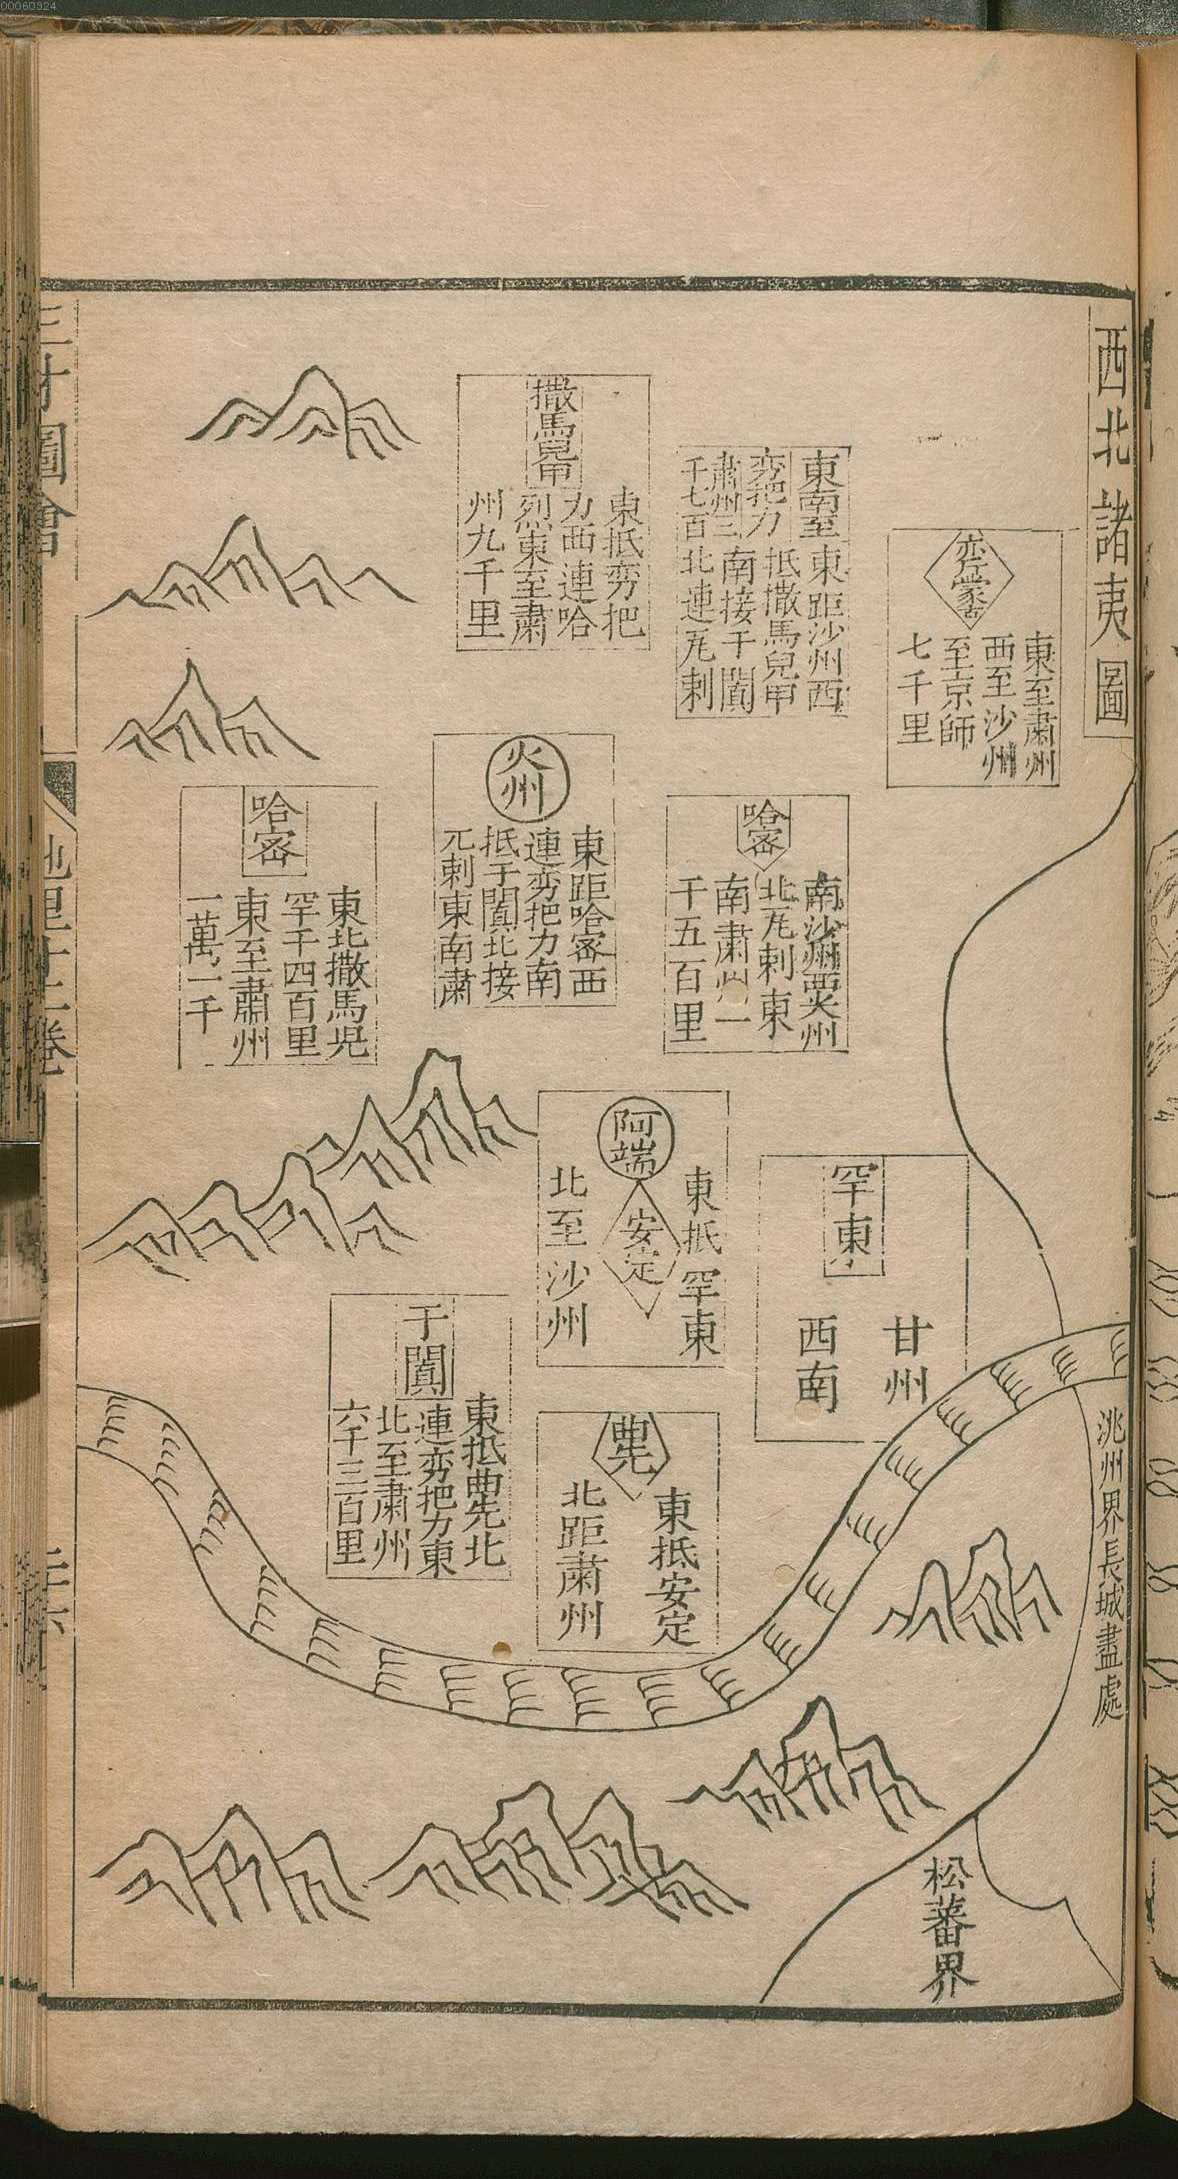 00060324
西北諸夷圖
亦斤蒙古
東至肅州
西至沙州
至京師
七千里
東南至
力
肅州三
千七百
東距沙州西
抵撒馬兒罕
南接于闐
北連瓦剌
撒馬兒罕
東抵亦把
力西連哈
烈東至肅
州九千里
哈密
南沙州西火州
北瓦剌東
南肅州一
千五百里
火州
東距哈密西
連亦把力南
抵于闐北接
瓦剌東南肅
哈密
東北撒馬兒
罕千四百里
東至肅州
一萬一千
罕東
甘州
西南
阿端
安定
東抵罕東
北至沙州
曲先
東抵安定
北距肅州
于闐
東抵曲先北
連亦把力東
北至肅州
六千三百里
洮州界長城盡處
松蕃界
三才圖會
地里十三卷